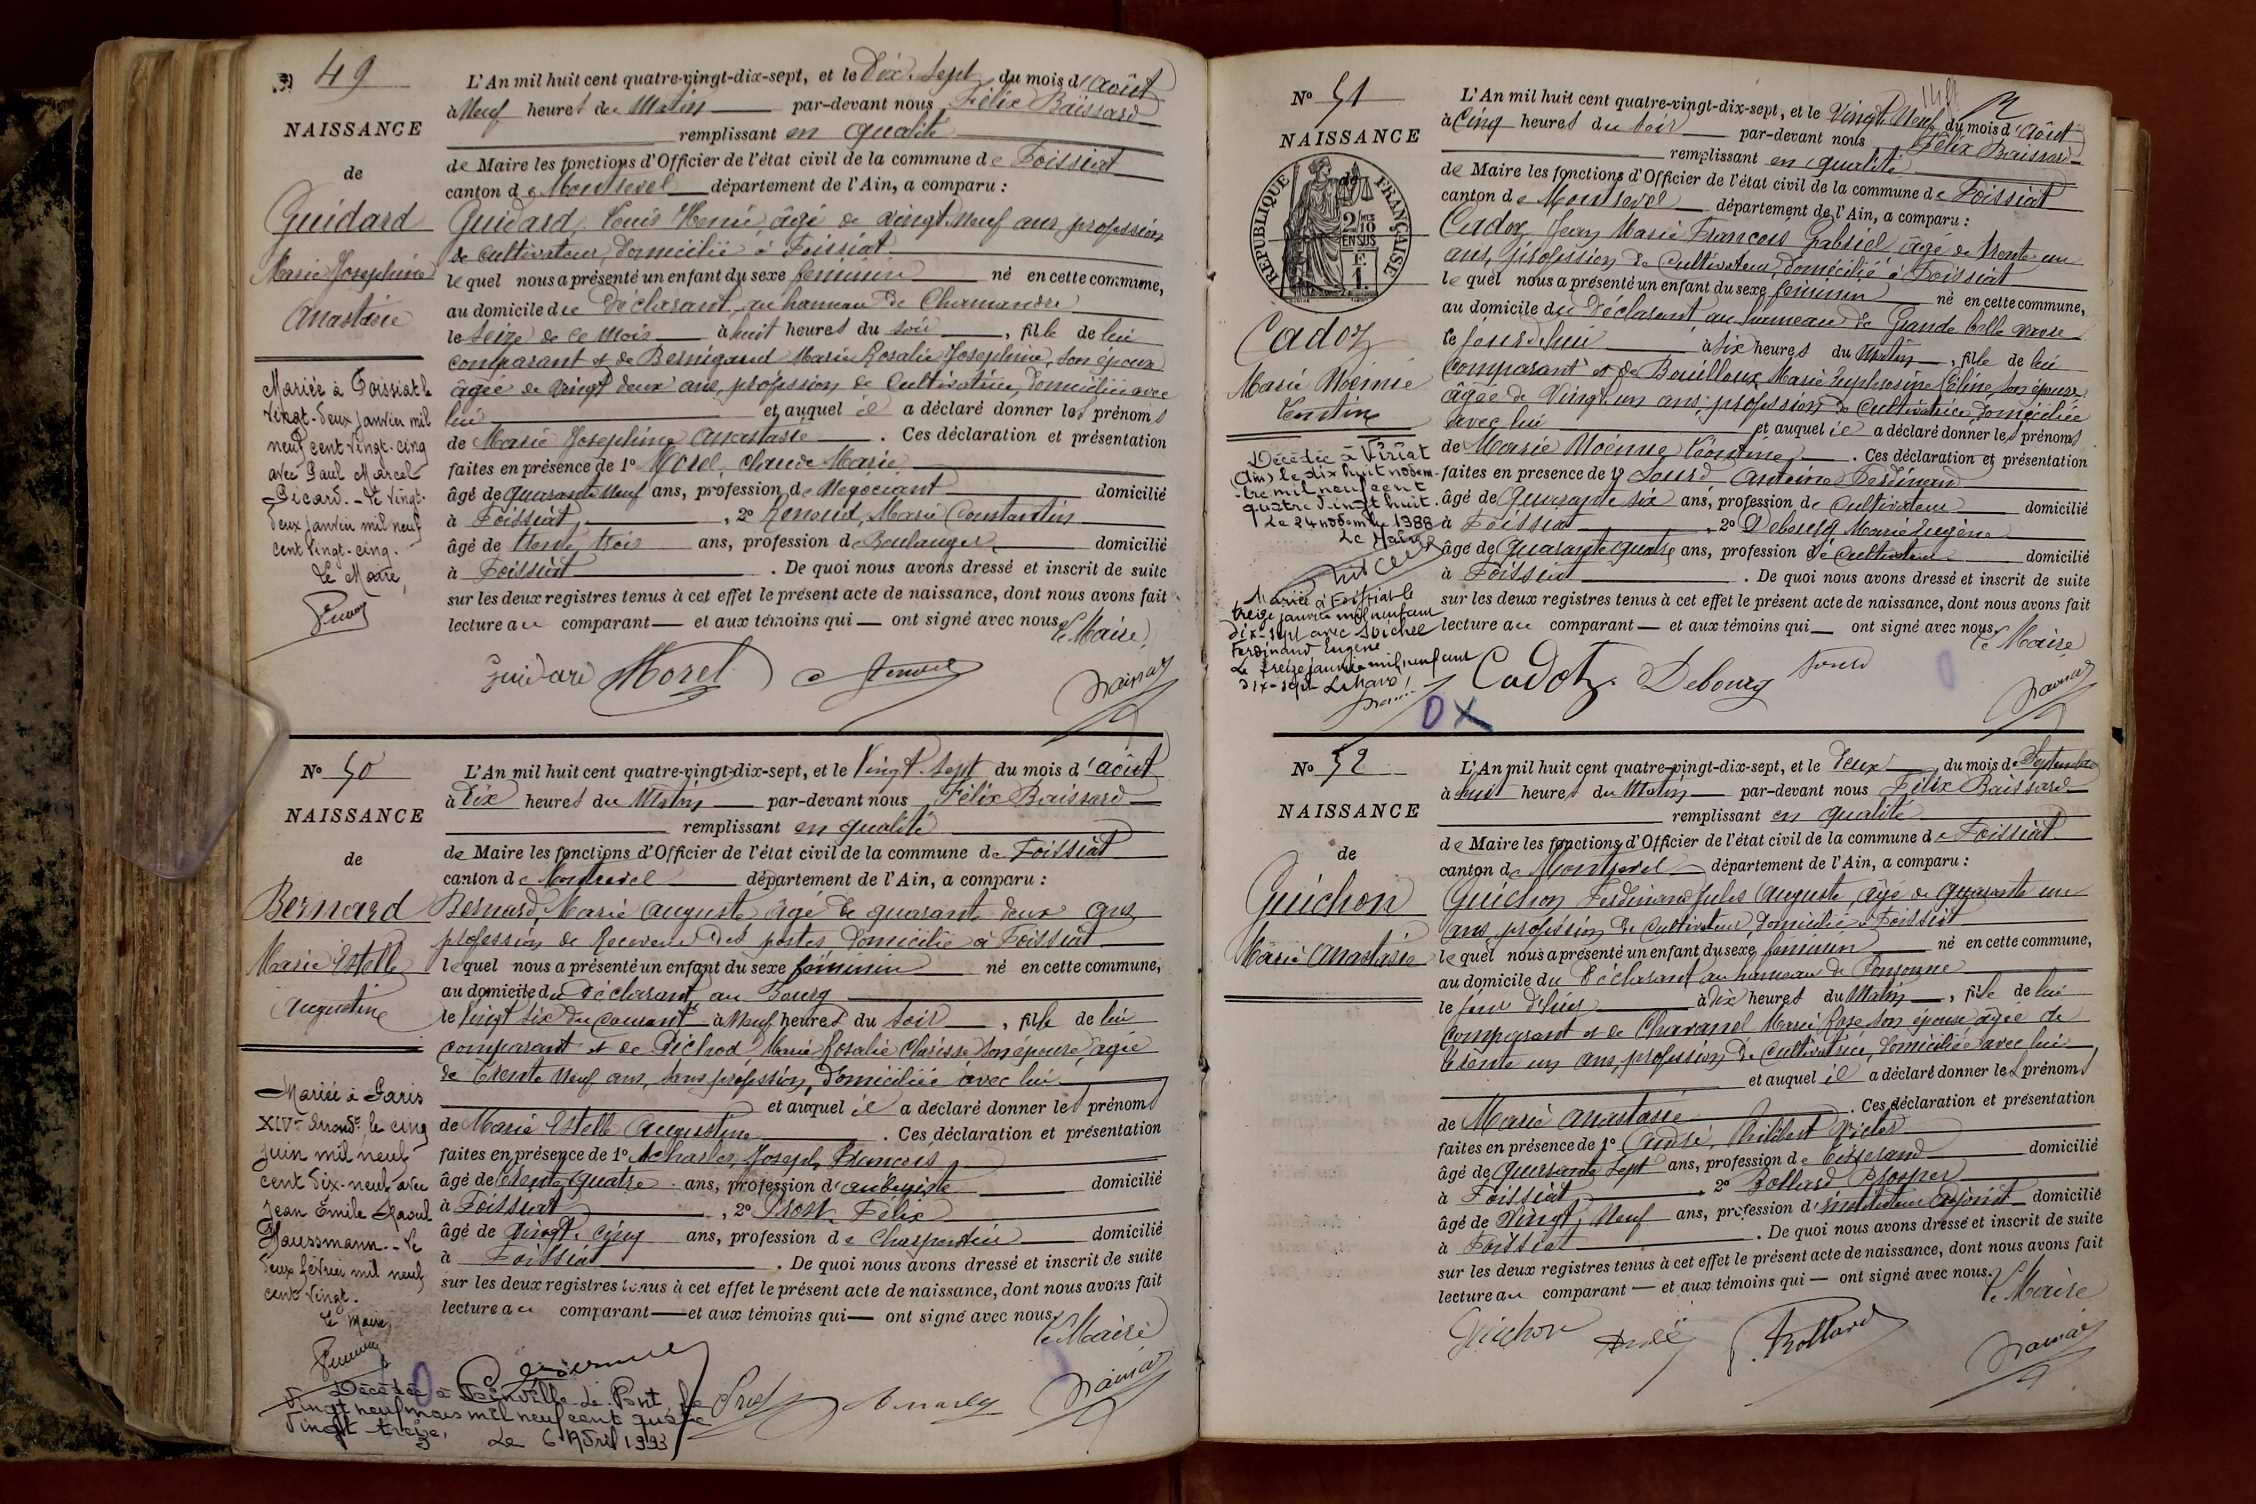 49
NAISSANCE
de
Guidard
Marie Josephine
Anastasie
Mariée à Foissiat le
vingt-deux janvier mil
neuf cent vingt-cinq
avec Paul Marcel
Picard. - Le vingt-
deux janvier mil neuf
cent vingt-cinq.
Le Maire,
L'An mil huit cent quatre-vingt-dix-sept, et le Dix-Sept du mois d'Août
à Neuf heures du Matin par-devant nous Félix Baissard
remplissant en qualité
de Maire les fonctions d'Officier de l'état civil de la commune de Foissiat
canton de Montrevel département de l'Ain, a comparu :
Guidard, Louis Henri, âgé de vingt Neuf ans, profession
de cultivateur, domicilié à Foissiat
lequel nous a présenté un enfant du sexe féminin né en cette commune,
au domicile du Déclarant au hameau de Chamandre
le Seize de ce Mois à huit heures du soir, fille de lui
comparant et de Bernigaud Marie Rosalie Josephine, son épouse
âgée de vingt deux ans, profession de Cultivatrice, domiciliée avec
lui et auquel il a déclaré donner les prénoms
de Marie Josephine Anastasie. Ces déclaration et présentation
faites en présence de 1º Morel, Claude Marie
âgé de quarante Neuf ans, profession de Negociant domicilié
à Foissiat, 2º Renoud, Marie Constantin
âgé de trente trois ans, profession de Boulanger domicilié
à Foissiat. De quoi nous avons dressé et inscrit de suite
sur les deux registres tenus à cet effet le présent acte de naissance, dont nous avons fait
lecture au comparant et aux témoins qui ont signé avec nous.
Le Maire,
Guidard Morel
Nº 50
NAISSANCE
de
Bernard
Marie Estelle
Augustine
Mariée à Paris
XIVe Arrondt, le cinq
juin mil neuf
cent dix-neuf avec
Jean Émile Raoul
Haussmann. - Le
deux février mil neuf
cent vingt.
Le Maire,
L'An mil huit cent quatre-vingt-dix-sept, et le Vingt-Sept du mois d'août
à Dix heures du Matin par-devant nous Félix Baissard
remplissant en qualité
de Maire les fonctions d'Officier de l'état civil de la commune de Foissiat
canton de Montrevel département de l'Ain, a comparu :
Bernard, Marie Auguste âgé de quarante deux ans,
profession de Receveur des postes, domicilié à Foissiat
lequel nous a présenté un enfant du sexe féminin né en cette commune,
au domicile du Déclarant au Bourg
le Vingt Six du Courant à Neuf heures du soir, fille de lui
comparant et de Pichod Marie Rosalie Clarisse son épouse, âgée
de trente Neuf ans, sans profession, domiciliée avec lui
et auquel il a déclaré donner les prénoms
de Marie Estelle Augustine. Ces déclaration et présentation
faites en présence de 1º Acharles, Joseph, François
âgé de trente quatre ans, profession d'aubergiste domicilié
à Foissiat, 2º Prost Félix
âgé de vingt-cinq ans, profession de Charpentier domicilié
à Foissiat. De quoi nous avons dressé et inscrit de suite
sur les deux registres tenus à cet effet le présent acte de naissance, dont nous avons fait
lecture au comparant et aux témoins qui ont signé avec nous.
Le Maire
Décédée à Joinville-le-Pont le
vingt neuf mars mil neuf cent quatre
vingt-treize,
Le 6 Avril 1993
Nº 51
NAISSANCE
de
RÉPUBLIQUE FRANÇAISE
2/10 EN SUS
Cadoz
Marie Noémie
Léontine
Décédée à Viriat
(Ain) le dix huit novem-
-bre mil neuf cent
quatre vingt huit.
Le 24 novembre 1988
Le Maire
Mariée à Foissiat le
treize janvier mil neuf cent
dix-sept avec Michel
Ferdinand Eugène
Le treize janvier mil neuf cent
dix-sept Le Maire,
L'An mil huit cent quatre-vingt-dix-sept, et le Vingt Neuf du mois d'Août
à Cinq heures du soir par-devant nous Félix Baissard
remplissant en qualité
de Maire les fonctions d'Officier de l'état civil de la commune de Foissiat
canton de Montrevel département de l'Ain, a comparu :
Cadoz Jean Marie François Gabriel, âgé de trente un
ans, profession de Cultivateur, domicilié à Foissiat
lequel nous a présenté un enfant du sexe féminin né en cette commune,
au domicile du Déclarant au hameau de Grande belle
le jour d'hui à Six heures du Matin, fille de lui
comparant et de Bouilloux Marie Euphrosine Céline, son épouse
âgée de Vingt un ans, profession de Cultivatrice, domiciliée
avec lui et auquel il a déclaré donner les prénoms
de Marie Noémie Léontine. Ces déclaration et présentation
faites en présence de 1º Sourd Antoine Ferdinand
âgé de Quarante Six ans, profession de Cultivateur domicilié
à Foissiat, 2º Debourg Marie Eugène
âgé de Quarante quatre ans, profession de Cultivateur domicilié
à Foissiat. De quoi nous avons dressé et inscrit de suite
sur les deux registres tenus à cet effet le présent acte de naissance, dont nous avons fait
lecture au comparant et aux témoins qui ont signé avec nous.
Le Maire
Cadoz Debourg Sourd
0 X
Nº 52
NAISSANCE
de
Guichon
Marie Anastasie
L'An mil huit cent quatre-vingt-dix-sept, et le Deux du mois de Septembre
à huit heures du Matin par-devant nous Félix Baissard
remplissant en qualité
de Maire les fonctions d'Officier de l'état civil de la commune de Foissiat
canton de Montrevel département de l'Ain, a comparu :
Guichon Ferdinand Jules Auguste, âgé de quarante un
ans, profession de Cultivateur, domicilié à Foissiat
lequel nous a présenté un enfant du sexe féminin né en cette commune,
au domicile du Déclarant au hameau de
le jour d'hier à dix heures du Matin, fille de lui
comparant et de Charanel Marie Rose son épouse âgée de
trente un ans, profession de Cultivatrice, domiciliée avec lui
et auquel il a déclaré donner les prénoms
de Marie Anastasie. Ces déclaration et présentation
faites en présence de 1º André, Philibert Victor
âgé de quarante Sept ans, profession de Tisserand domicilié
à Foissiat, 2º Rollard Prosper
âgé de Vingt Neuf ans, profession d'instituteur adjoint domicilié
à Foissiat. De quoi nous avons dressé et inscrit de suite
sur les deux registres tenus à cet effet le présent acte de naissance, dont nous avons fait
lecture au comparant et aux témoins qui ont signé avec nous.
Le Maire
Guichon André Rollard